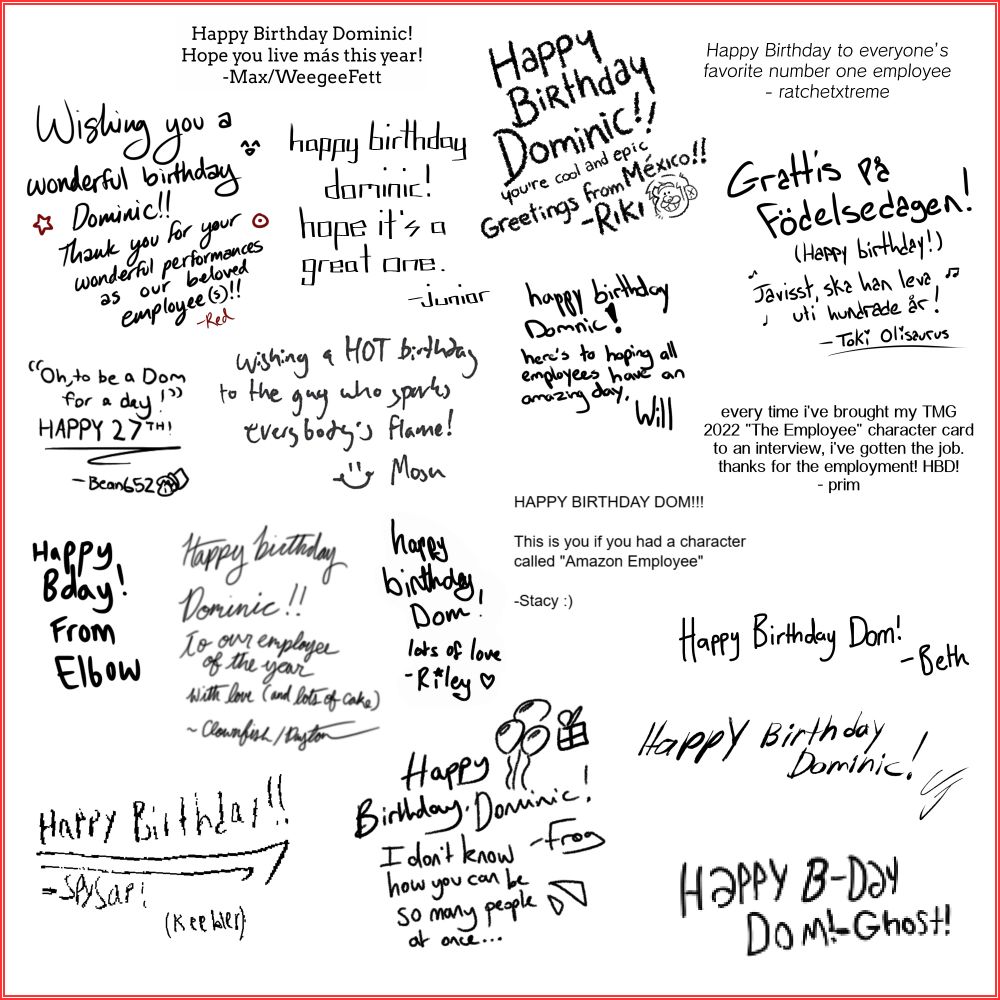 Happy Birthday Dominic!
Hope you live más this year!
-Max/WeegeeFett
Happy
Birthday
Dominic!!
you're cool and epic
Greetings from México!!
-Riki
Happy Birthday to everyone's
favorite number one employee
- ratchetxtreme
Wishing you a
wonderful birthday
Dominic!!
Thank you for your
wonderful performances
as our beloved
employee(s)!!
-Red
happy birthday
dominic!
hope it's a
great one.
-Junior
Grattis på
Födelsedagen!
(Happy birthday!)
Javisst, ska han leva
uti hundrade år!
- Toki Olisaurus
happy birthday
Domnic!
here's to hoping all
employees have an
amazing day.
Will
"Oh, to be a Dom
for a day!"
HAPPY 27TH!
-Bean652
Wishing a HOT birthday
to the guy who sparks
everybody's flame!
Mosu
every time i've brought my TMG
2022 "The Employee" character card
to an interview, i've gotten the job.
thanks for the employment! HBD!
- prim
HAPPY BIRTHDAY DOM!!!
This is you if you had a character
called "Amazon Employee"
-Stacy :)
Happy
Bday!
From
Elbow
Happy birthday
Dominic!!
To our employee
of the year
With love (and lots of cake)
~ Clownfish/Dayton
happy
birthday
Dom!
lots of love
-Riley
Happy Birthday Dom!
-Beth
Happy Birthday
Dominic!
Happy
Birthday, Dominic!
-Frog
I don't know
how you can be
so many people
at once...
Happy Birthday!!
-SpySap!
(Keebler)
Happy B-Day
Dom!-Ghost!